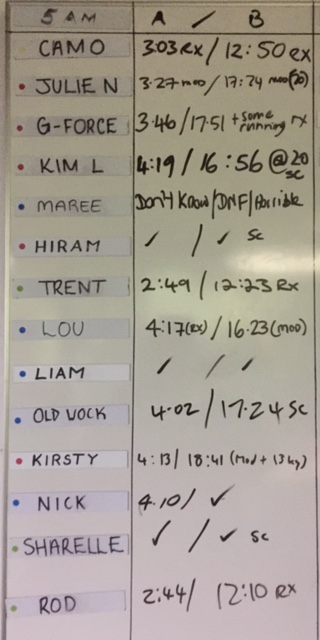 5 AM A / B
CAMO 3:03 RX / 12:50 RX
JULIE N 3:27 mod / 17:24 mod (20)
G-FORCE 3:46 / 17:51 + some running rx
KIM L 4:19 / 16:56 @ 20 sc
MAREE Don't Know / DNF / Horrible
HIRAM ✓ / ✓ SC
TRENT 2:49 / 12:23 RX
LOU 4:17 (RX) / 16.23 (mod)
LIAM ✓ / ✓
OLD 4.02 / 17.24 SC
KIRSTY 4:13 / 18:41 (Mod + 13 kg)
NICK 4.10 / ✓
SHARELLE ✓ / ✓ SC
ROD 2:44 / 12:10 RX